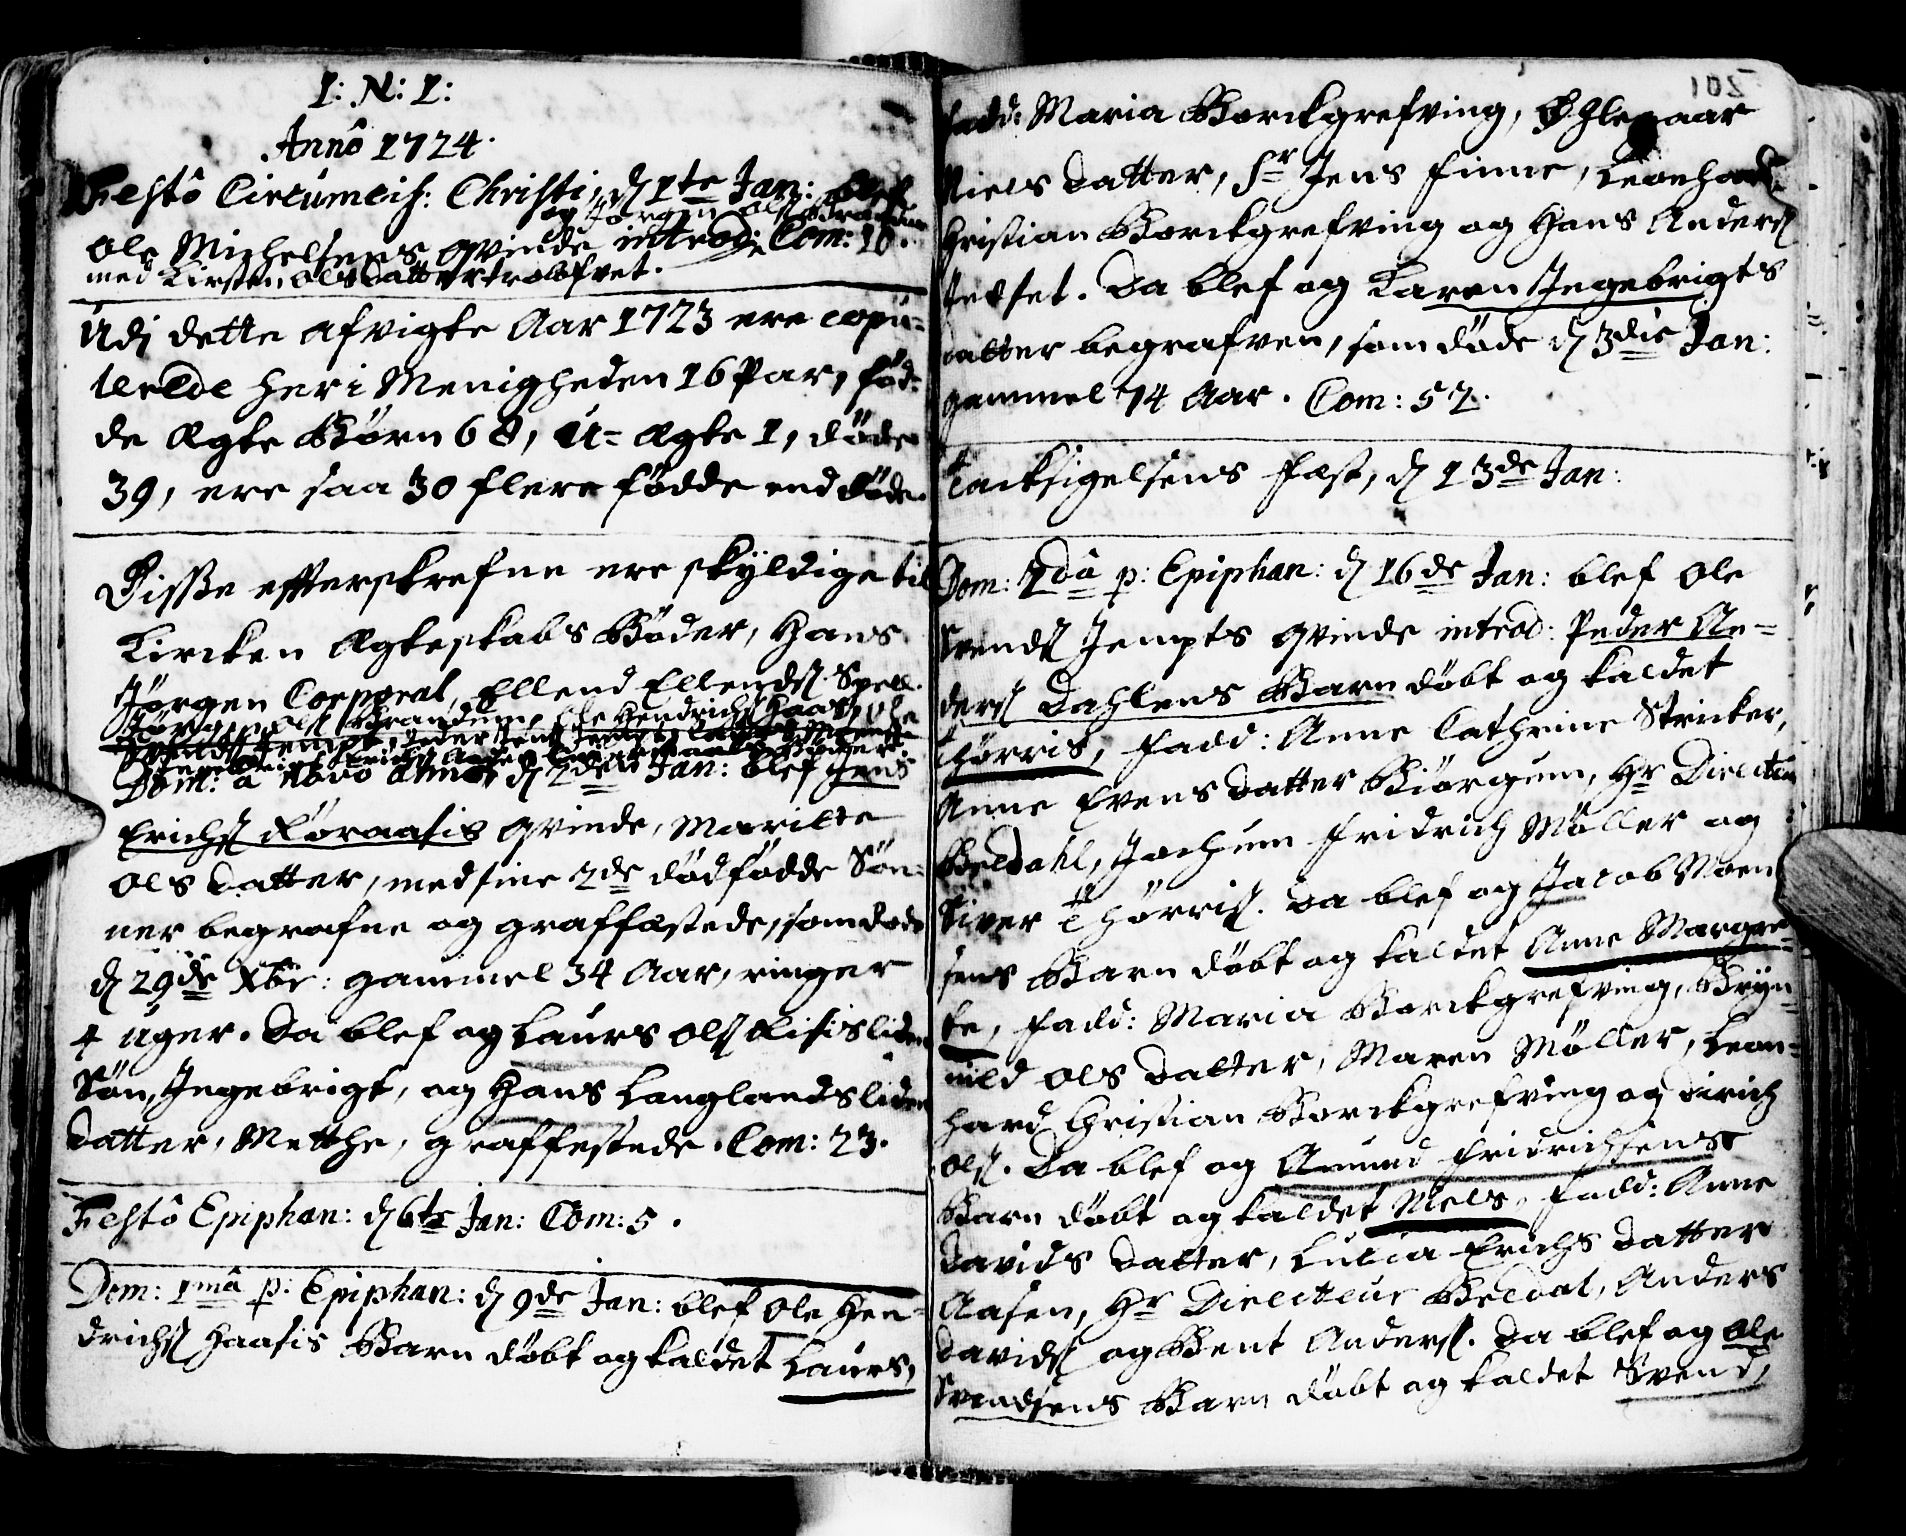 I: N: I:
Annô 1724.
Festô Circumcis: Christi, d 1te Jan: blef
og Jörgen Ols Brandem
Ole Michelsens qvinde introd: Com: 10.
med Kirsten Olsdatter trolofvet.
Udj dette afvigte Aar 1723 ere copu-
lerede her i Menigheden 16 Par, föd-
de Ægte Börn 68, U-Ægte 1, döde
39, ere saa 30 flere födde end döde.
Disse effterskrefne ere skÿldige til
Kircken Ægteskabs Böder, Hans
Jörgen Corporal, Ellend Ellends Spell.
Jörgen Ols Brandem, Ole Hendrichs Haas, Ole
Dom: a novo anno, d 2den Jan: blef Jens
Erichs Röraasis qvinde, Marilte
Ols datter, med sine 2de dödfödde Sön-
ner begrafne og graffæstede, som döde
d 29de Xbr: gammel 34 Aar, ringer
4 uger. Da blef og Laurs Ols Risisliden
Sön, Ingebrigt, og Hans Langlandsliden
datter, Metthe, graffestede. Com: 23.
Festô Epiphan: d 6te Jan: Com: 5.
Dom: 1mâ p: Epiphan: d 9de Jan: blef Ole Hen-
drichs Haasis Barn döbt og kaldet Laurs,
105
fadd: Maria Borckgrefving,
Niels datter, Sr Jens Finne, Leonhard
Christian Borckgrefving og Hans Anders
Tetset. Da blef og Karen Ingebrigts
datter begrafven, som döde d 3die Jan:
gammel 74 Aar. Com: 52.
Tacksigelsens Fæst, d 13de Jan:
Dom: 2dâ p: Epiphan: d 16de Jan: blef Ole
Svends Jempts qvinde introd: Peder An-
ders Dahlens Barn döbt og kaldet
Thörris, Fadd: Anne Cathrine Stricker,
Anne Evens datter Biörgum, Hr Directeur
Beldahl, Jochum Fridrich Möller og
Siver Thörris. Da blef og Jacob Moen
sens Barn döbt og kaldet Anne Margre-
te, Fadd: Maria Borckgrefving, Brÿn-
ild Ols datter, Maren Möller, Leon-
hard Christian Borckgrefving og Dirich
Ols. Da blef og Amund Fridrichsens
Barn döbt og kaldet Niels, Fadd: Anne
Davids datter, Lucia Erichs datter
Aasen, Hr Directeur Beldal, Anders
Davids og Bent Anders. Da blef og Ole
Svendsens Barn döbt og kaldet Svend,